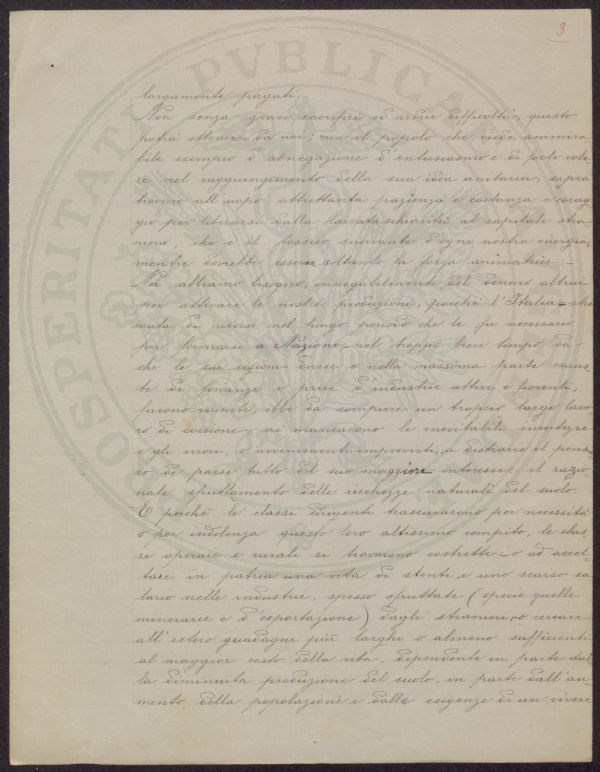 3
largamente pagati.
Non senza gravi sacrifici ed ardue difficoltà, questo
potrà ottenersi da noi; ma il popolo che diede ammira
bile esempio d'abnegazione d'entusiasmo e di forte vole
re nel raggiungimento della sua idea unitaria, saprà
trovare all'uopo altrettanta pazienza e costanza e corag
gio per liberarsi dalla larvata schiavitù al capitale stra
niero, che è il tossico snervante d'ogni nostra energia,
mentre dovrebbe esserne soltanto la forza animatrice. –
Noi abbiamo bisogno, innegabilmente, del denaro altrui
per attivare le nostre produzioni, poiché l'Italia stre
mata di risorse nel lungo periodo che le fu necessario
per formarsi a Nazione, nel troppo breve tempo da
che le sue regioni divise e nella massima parte esaus
te di finanze e prive d'industrie attive e fiorenti,
furono riunite, ebbe da compiere un troppo largo lavo
ro di coesione, né mancarono le inevitabili incertezze
e gli errori, o avvenimenti imprevisti, a distrarre il pensie
ro del paese tutto dal suo maggiore interesse: il razio
nale sfruttamento delle ricchezze naturali del suolo.
E poiché le classi dirigenti trascurarono per necessità
o per indolenza questo loro altissimo compito, le clas
si operaie e rurali si trovarono costrette: o ad accet
tare in patria una vita di stenti e uno scarso sa
lario nelle industrie, spesso sfruttate (specie quelle
minerarie e d'esportazione) dagli stranieri, o cercare
all'estero guadagni più larghi o almeno sufficienti
al maggior costo della vita, dipendente in parte dal
la diminuita produzione del suolo, in parte dall'au
mento della popolazione e dalle esigenze di un vivere
PROSPERITATI PVBLICAE